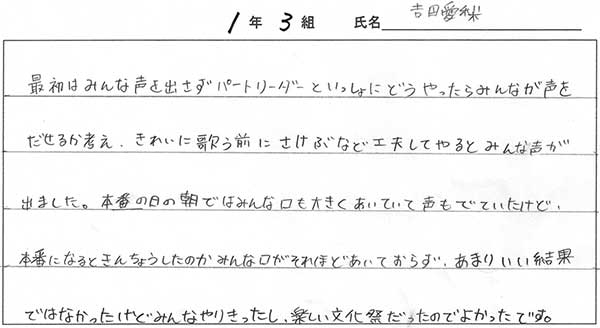 1年 3組 氏名 吉田愛梨
最初はみんな声を出さずパートリーダーといっしょにどうやったらみんなが声を
だせるか考え、きれいに歌う前にさけぶなど工夫してやるとみんな声が
出ました。本番の日の朝ではみんな口も大きくあいていて声もでていたけど、
本番になるときんちょうしたのかみんな口がそれほどあいておらず、あまりいい結果
ではなかったけどみんなやりきったし、楽しい文化祭だったのでよかったです。